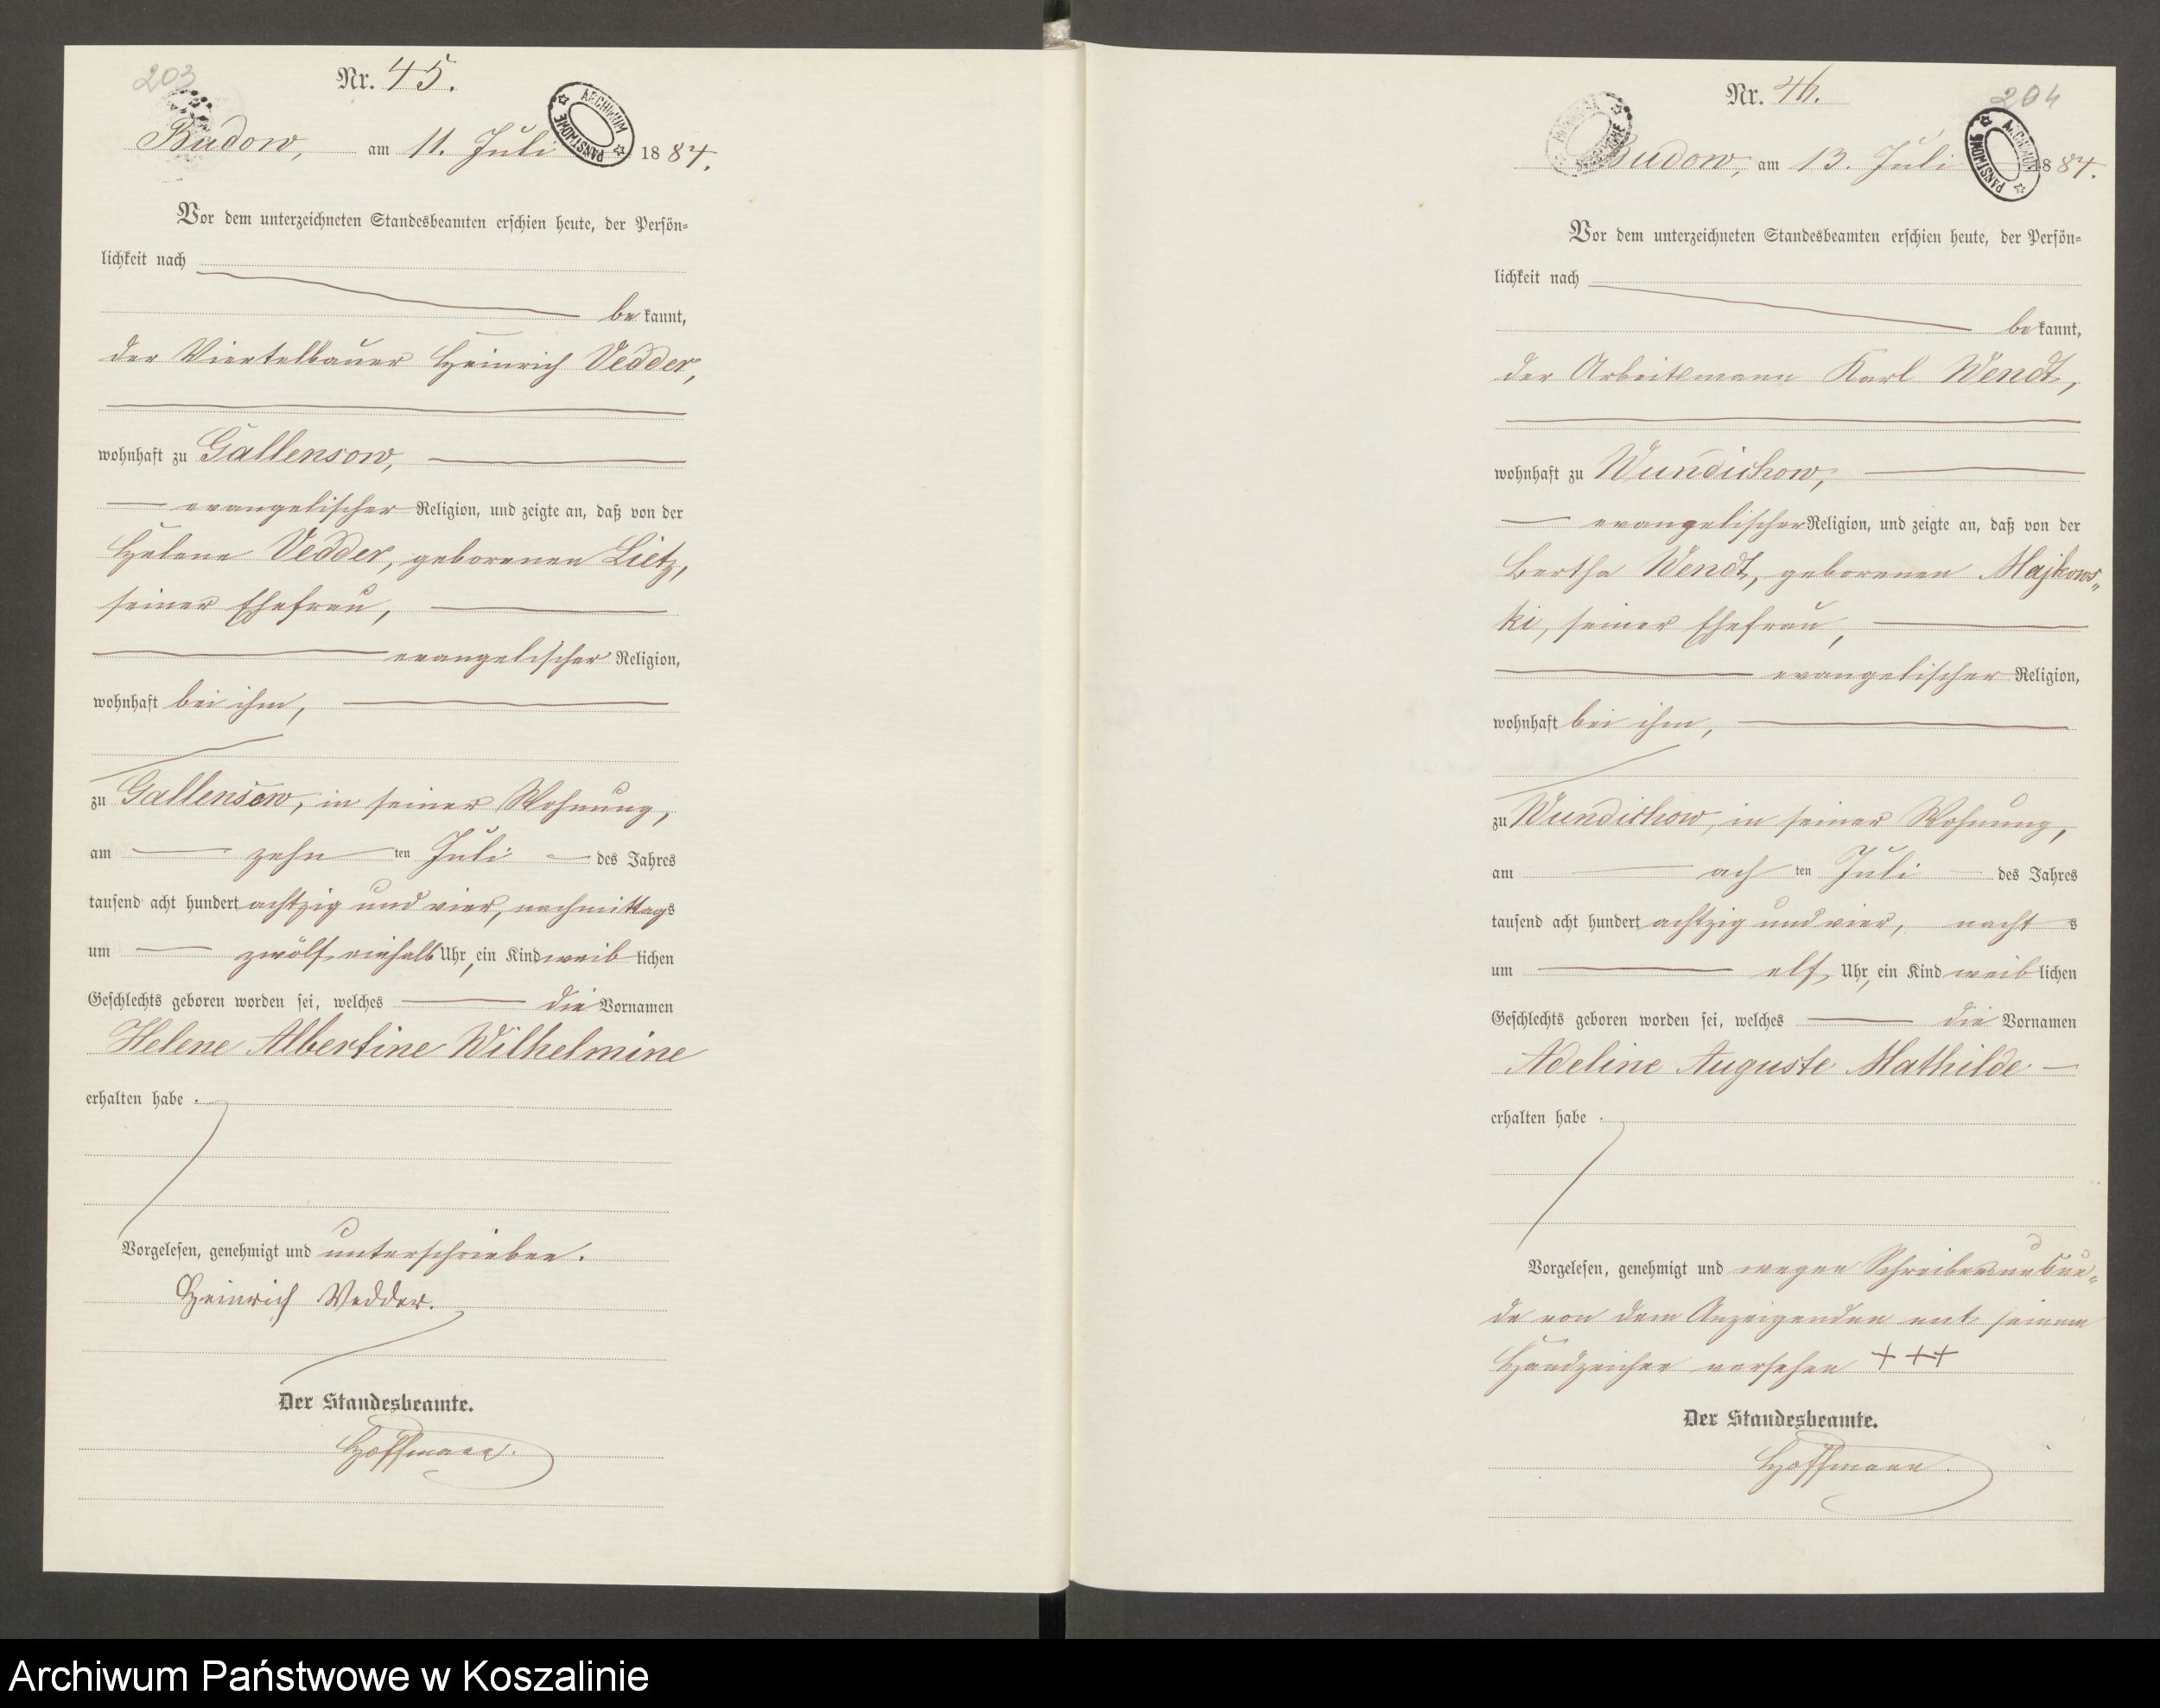 203
Nr. 45.
ARCHIWUM PAŃSTWOWE
Budow, am 11. Juli 1884.
Vor dem unterzeichneten Standesbeamten erschien heute, der Persön-
lichkeit nach
bekannt,
der Viertelbauer Heinrich Vedder,
wohnhaft zu Gallensow,
evangelischer Religion, und zeigte an, daß von der
Helene Vedder, geborenen Lietz,
seiner Ehefrau,
evangelischer Religion,
wohnhaft bei ihm,
zu Gallensow, in seiner Wohnung,
am zehn ten Juli des Jahres
tausend acht hundert achtzig und vier, nachmittags
um zwölf einhalb Uhr, ein Kind weiblichen
Geschlechts geboren worden sei, welches die Vornamen
Helene Albertine Wilhelmine
erhalten habe.
Vorgelesen, genehmigt und unterschrieben.
Heinrich Vedder.
Der Standesbeamte.
Hoffmann.
204
Nr. 46.
ARCHIWUM PAŃSTWOWE
Budow, am 13. Juli 1884.
Vor dem unterzeichneten Standesbeamten erschien heute, der Persön-
lichkeit nach
bekannt,
der Arbeitsmann Karl Wendt,
wohnhaft zu Wundichow,
evangelischer Religion, und zeigte an, daß von der
Bertha Wendt, geborenen Majkows-
ki, seiner Ehefrau,
evangelischer Religion,
wohnhaft bei ihm,
zu Wundichow, in seiner Wohnung,
am ach ten Juli des Jahres
tausend acht hundert achtzig und vier, nachts
um elf Uhr, ein Kind weiblichen
Geschlechts geboren worden sei, welches die Vornamen
Adeline Auguste Mathilde
erhalten habe.
Vorgelesen, genehmigt und wegen Schreibensunkun-
de von dem Anzeigenden mit seinem
Handzeichen versehen +++
Der Standesbeamte.
Hoffmann.
Archiwum Państwowe w Koszalinie